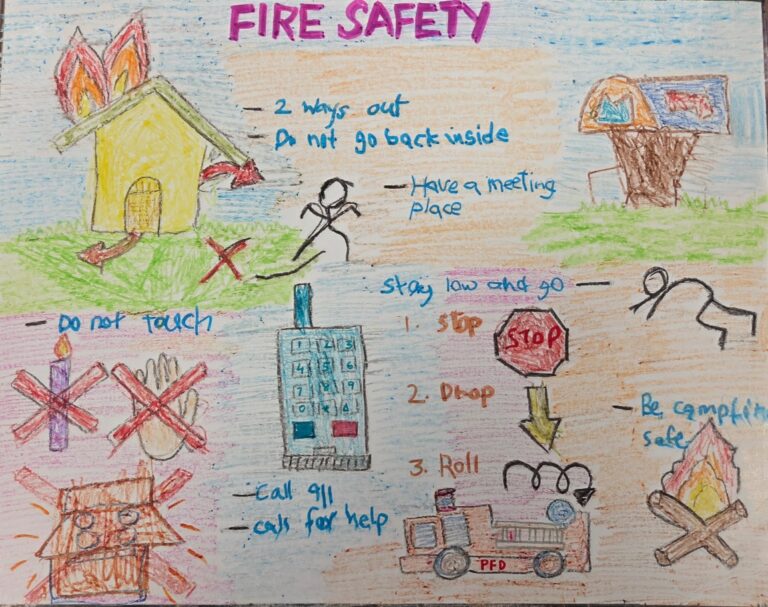 FIRE SAFETY
- 2 ways out
- Do not go back inside
- Have a meeting
place
Stay low and go -
- Do not touch
1. Stop
STOP
2. Drop
3. Roll
1 2 3
4 5 6
7 8 9
0
- Be campfire
safe
- Call 911
- calls for help
PFD